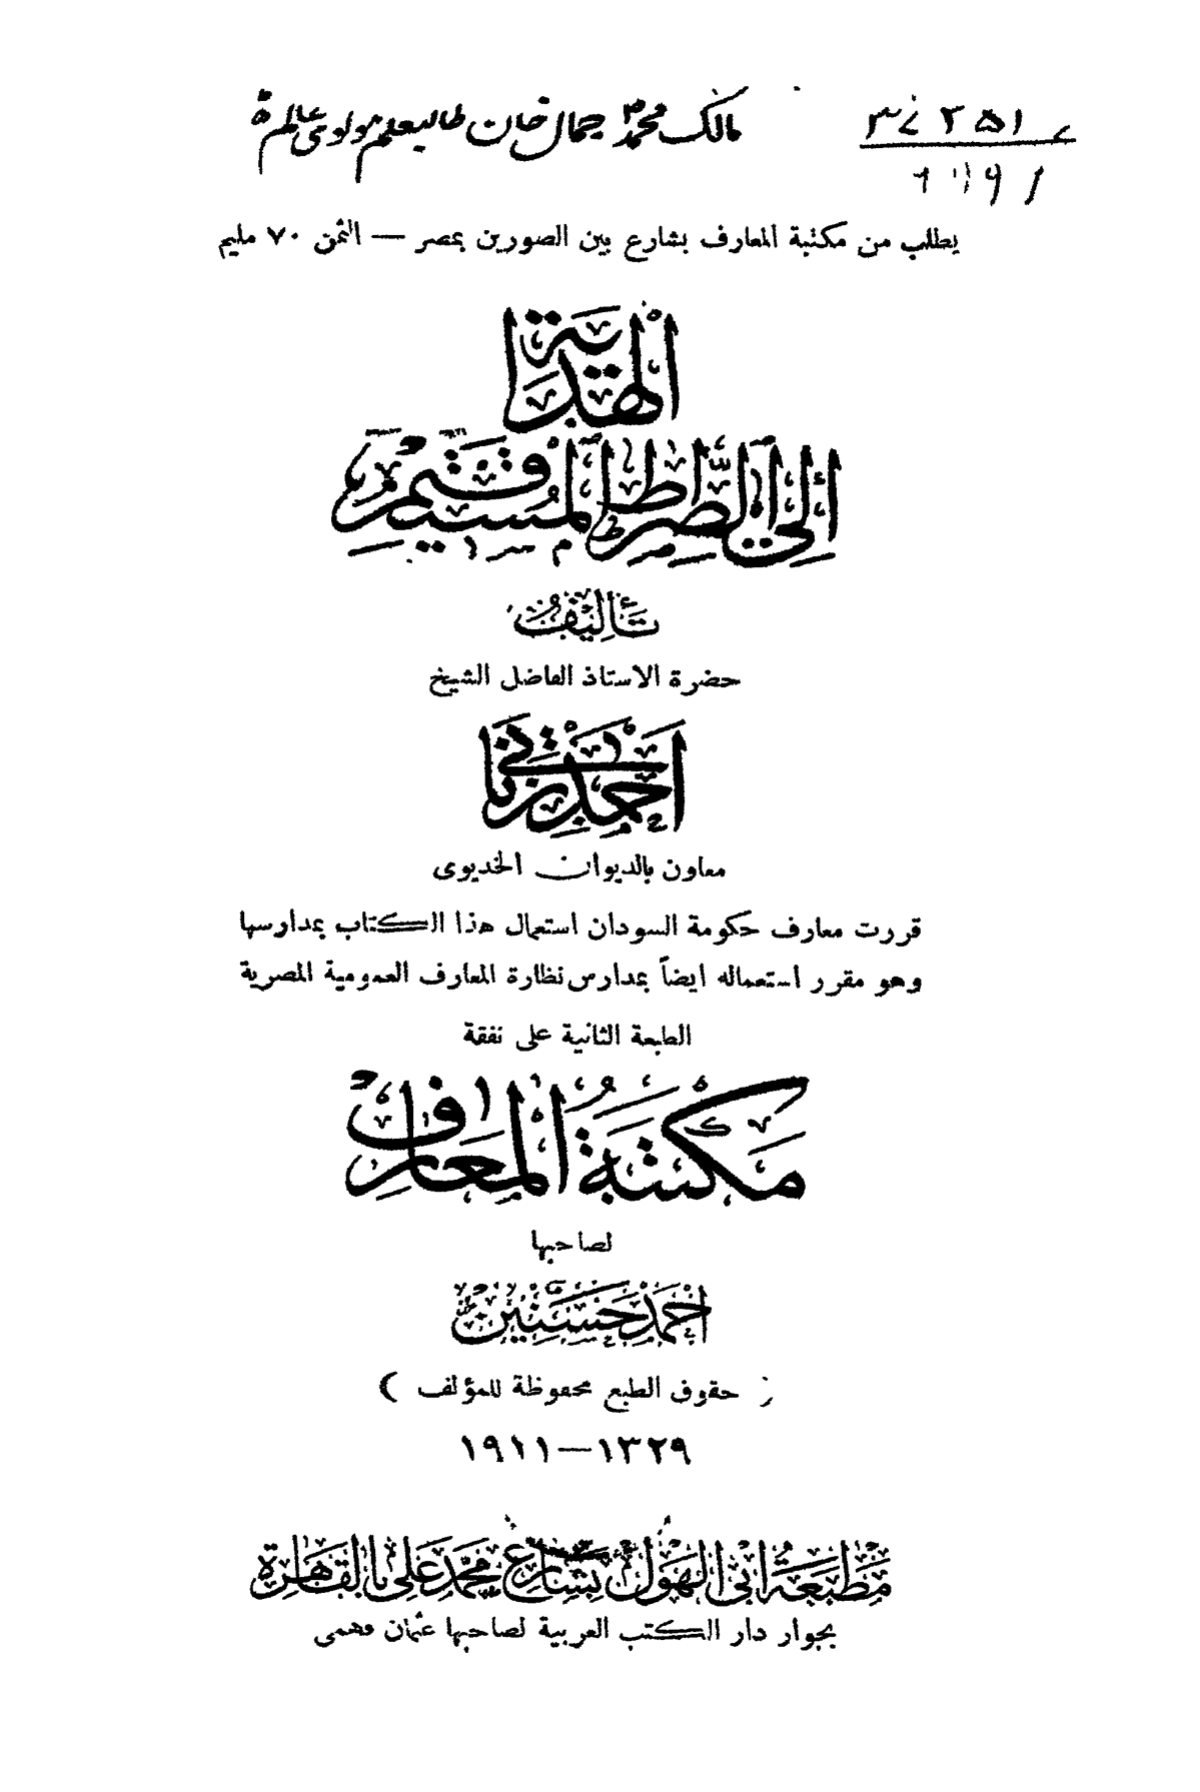 مالک محمد جمال خان طالبعلم مولوی عالم
يطلب من مكتبة المعارف بشارع بين الصورين بمصر — الثمن ٧٠ مليم
الهدية
إلى الصراط المستقيم
تأليف
حضرة الاستاذ الفاضل الشيخ
احمد زناتي
معاون بالديوان الخديوى
قررت معارف حكومة السودان استعمال هذا الكتاب بمدارسها
وهو مقرر استعماله ايضاً بمدارس نظارة المعارف العمومية المصرية
الطبعة الثانية على نفقة
مكتبة المعارف
لصاحبها
احمد حسنين
حقوق الطبع محفوظة للمؤلف )
١٣٢٩—١٩١١
مطبعة ابي الهول بشارع محمد علي بالقاهرة
بجوار دار الكتب العربية لصاحبها عثمان فهمى